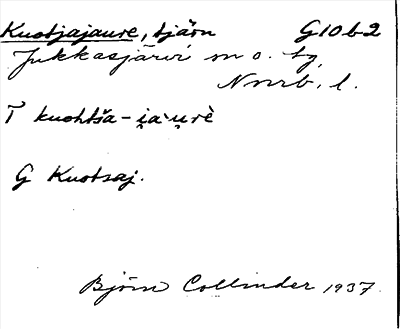 Kuotjajaure, tjärn G10b2
Jukkasjärvi sn o. tg,
Nnrb. l.
T kuohtša-i̯a·u̯rè
G Kuotsaj.
Björn Collinder 1937.